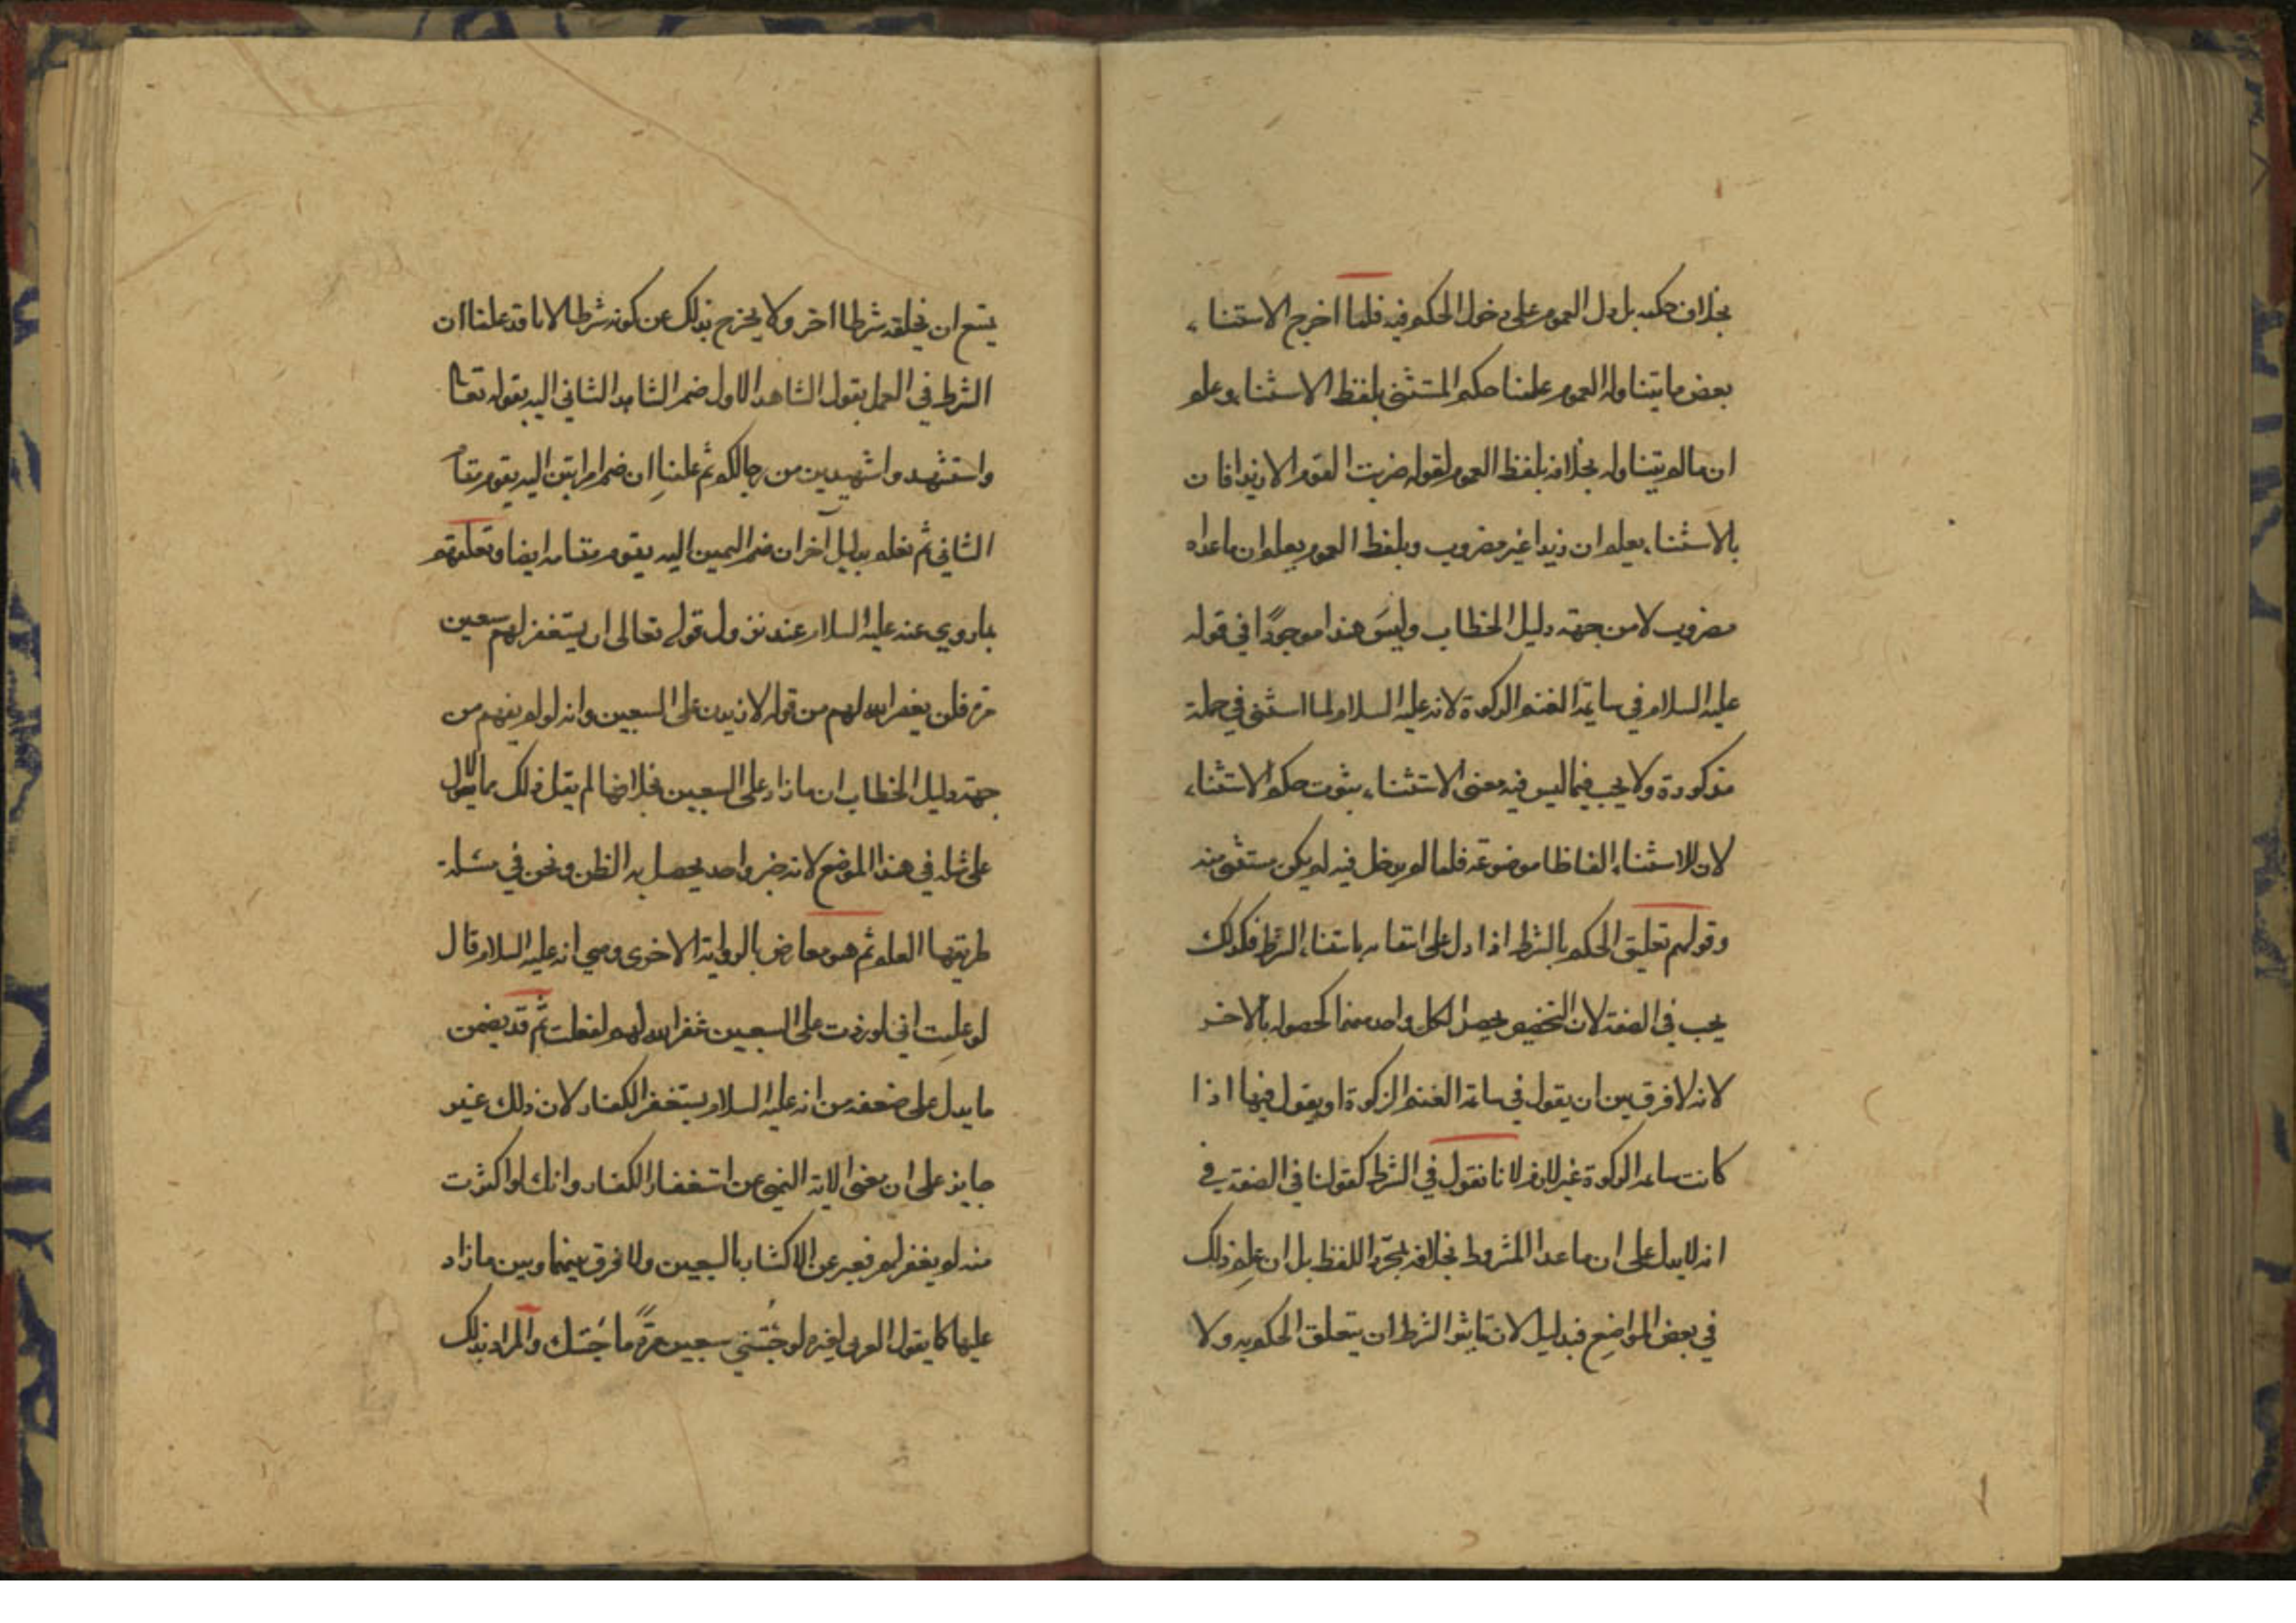 بخلاف حكمه بل دل العموم على دخول الحكم فيه فلما اخرج الاستثناء
بعض ما يتناوله العموم علمنا حكم المستثنى بلفظ الاستثناء وعلم
ان ما لم يتناوله بخلافه بلفظ العموم لقوله ضربت القوم الا زيدا فان
بالاستثناء يعلم ان زيدا غير مضروب وبلفظ العموم يعلم ان ما عداه
مضروب لا من جهة دليل الخطاب وليس هذا موجودًا في قوله
عليه السلام في سايمة الغنم الزكوة لانه عليه السلام لما استثنى في جملة
مذكورة ولا يجب فيما ليس فيه معنى الاستثناء ثبوت حكم الاستثناء
لان للاستثناء الفاظا موضوعة فلما لم يدخل فيه لم يكن مستثنى منه
وقولهم تعليق الحكم بالشرط اذا دل على انتفائه بانتفاء الشرط فكذلك
يجب في الصفة لان التخصيص يحصل لكل واحد منهما كحصوله بالاخر
لانه لا فرق بين ان يقول في سائمة الغنم الزكوة او يقول فيها اذا
كانت سائمة الزكوة غير لازم لانا نقول في الشرط كقولنا في الصفة في
انه لا يدل على ان ما عدا المشروط بخلافه بمجرّد اللفظ بل ان علم ذلك
في بعض المواضع فبدليل لان تاثير الشرط ان يتعلق الحكم به ولا
يمتنع ان يخلفه شرطا اخر ولا يخرج بذلك عن كونه شرطا الا انا قد علمنا ان
الشرط في العمل بقول الشاهد الاول ضم الشاهد الثاني اليه بقوله تعالى
واستشهدوا شهيدين من رجالكم ثم علمنا ان ضم امراتين اليه يقوم مقام
الثاني ثم نعلم بدليل آخر ان ضم اليمين اليه يقوم مقامه ايضا وتعلقهم
بما روي عنه عليه السلام عند نزول قوله تعالى ان يستغفر لهم سبعين
مرة فلن يغفر الله لهم من قوله لازيدن على السبعين وانه لو لم يفهم من
جهة دليل الخطاب ان ما زاد على السبعين بخلافها لم يقل ذلك مما لا يعول
على مثله في هذا الموضع لانه خبر واحد يحصل به الظن ونحن في مسئلة
طريقها العلم ثم هو معارض بالرواية الاخرى وهي انه عليه السلام قال
لو علمت اني لو زدت على السبعين غفر الله لهم لفعلت ثم قد يضمن
ما يدل على ضعفه من انه عليه السلام يستغفر الكفار لان ذلك غير
جايز على ان معنى الاية النهي عن استغفار الكفار وانك لو اكثرت
منه لم يغفر لهم فعبر عن الاكثار بالسبعين ولا فرق بينها وبين ما زاد
عليها كما يقول العربي لغيره لو جئتني سبعين مرة ما جئتك والمراد بذلك